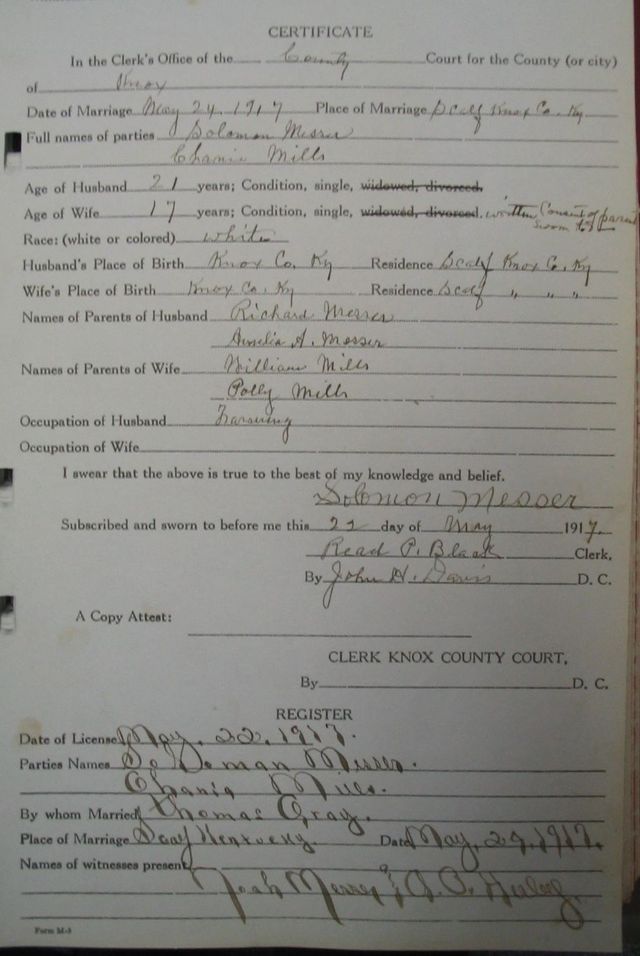 CERTIFICATE
In the Clerk's Office of the County Court for the County (or city)
of Knox
Date of Marriage May 24, 1917 Place of Marriage Scalf Knox Co. Ky
Full names of parties Solomon Messer
Chania Mills
Age of Husband 21 years; Condition, single, widowed, divorced.
Age of Wife 17 years; Condition, single, widowed, divorced. written Consent of parent
sworn to
Race: (white or colored) white
Husband's Place of Birth Knox Co. Ky Residence Scalf Knox Co. Ky
Wife's Place of Birth Knox Co. Ky Residence Scalf " " "
Names of Parents of Husband Richard Messer
A. Messer
Names of Parents of Wife William Mills
Polly Mills
Occupation of Husband Farming
Occupation of Wife
I swear that the above is true to the best of my knowledge and belief.
Solomon Messer
Subscribed and sworn to before me this 22 day of May 1917.
Read P. Black Clerk.
By John H. Davis D. C.
A Copy Attest:
CLERK KNOX COUNTY COURT,
By D. C.
REGISTER
Date of License May, 22, 1917.
Parties Names Soloman Messer.
Chania Mills.
By whom Married Thomas Gray.
Place of Marriage Scalf Kentucky. Date May, 24, 1917.
Names of witnesses present
Noah Messer &
Form M-3